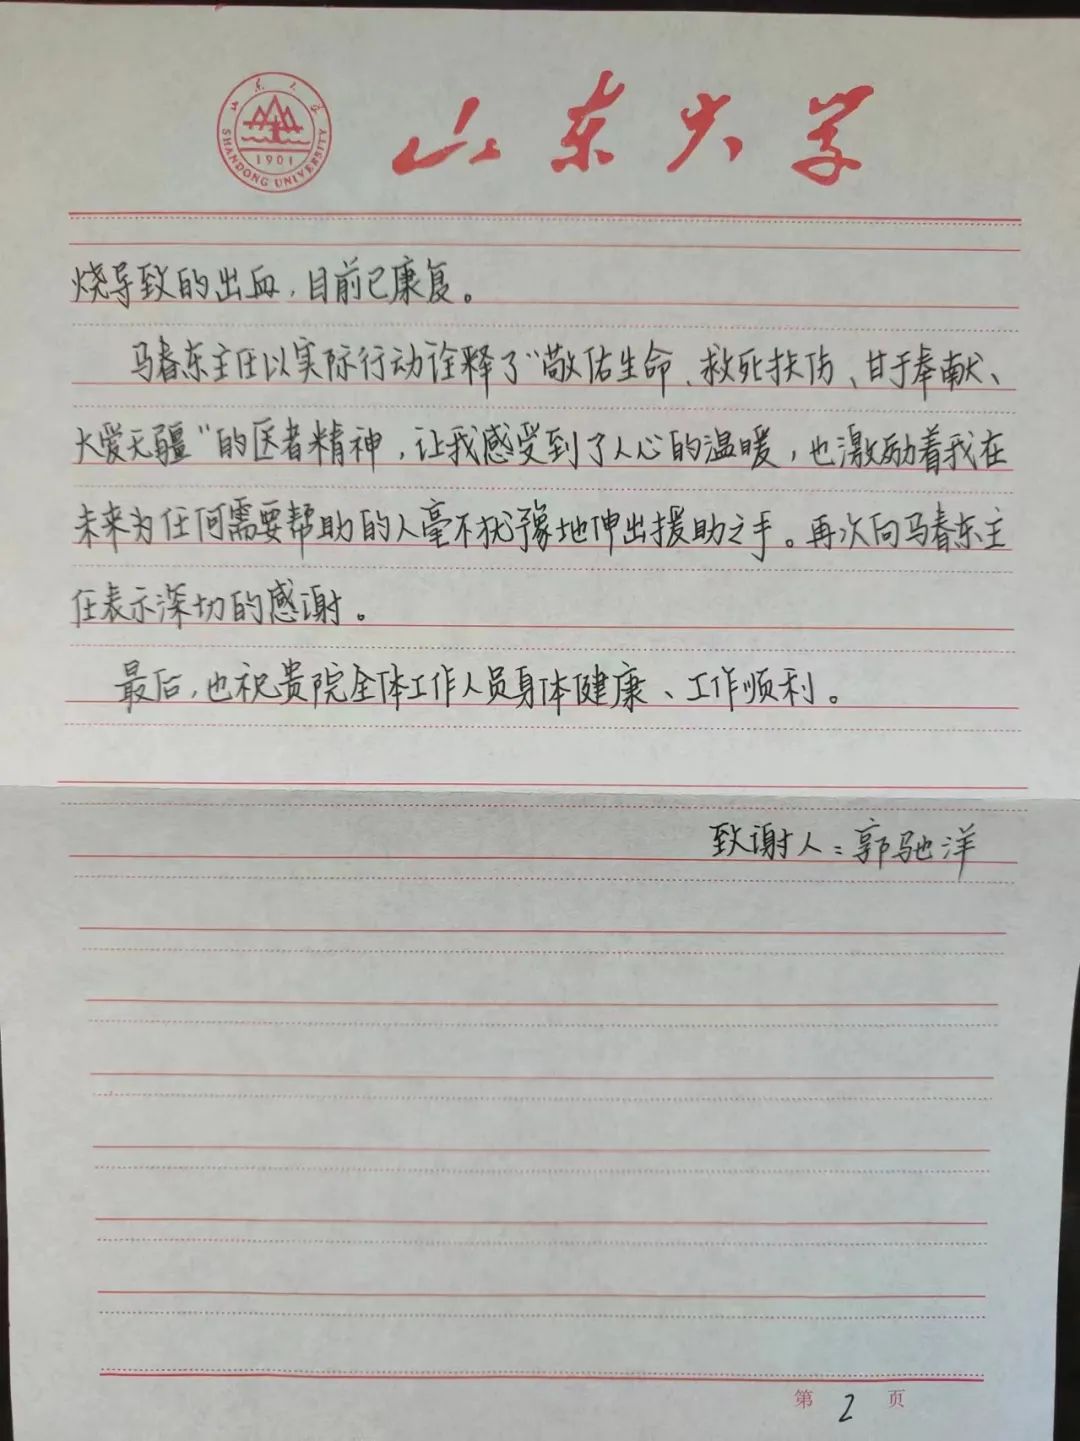 山东大学
山东大学
SHANDONG UNIVERSITY
1901
烧导致的出血，目前已康复。
马春东主任以实际行动诠释了“敬佑生命、救死扶伤、甘于奉献、
大爱无疆”的医者精神，让我感受到了人心的温暖，也激励着我在
未来为任何需要帮助的人毫不犹豫地伸出援助之手。再次向马春东主
任表示深切的感谢。
最后，也祝贵院全体工作人员身体健康、工作顺利。
致谢人：郭驰洋
第2页